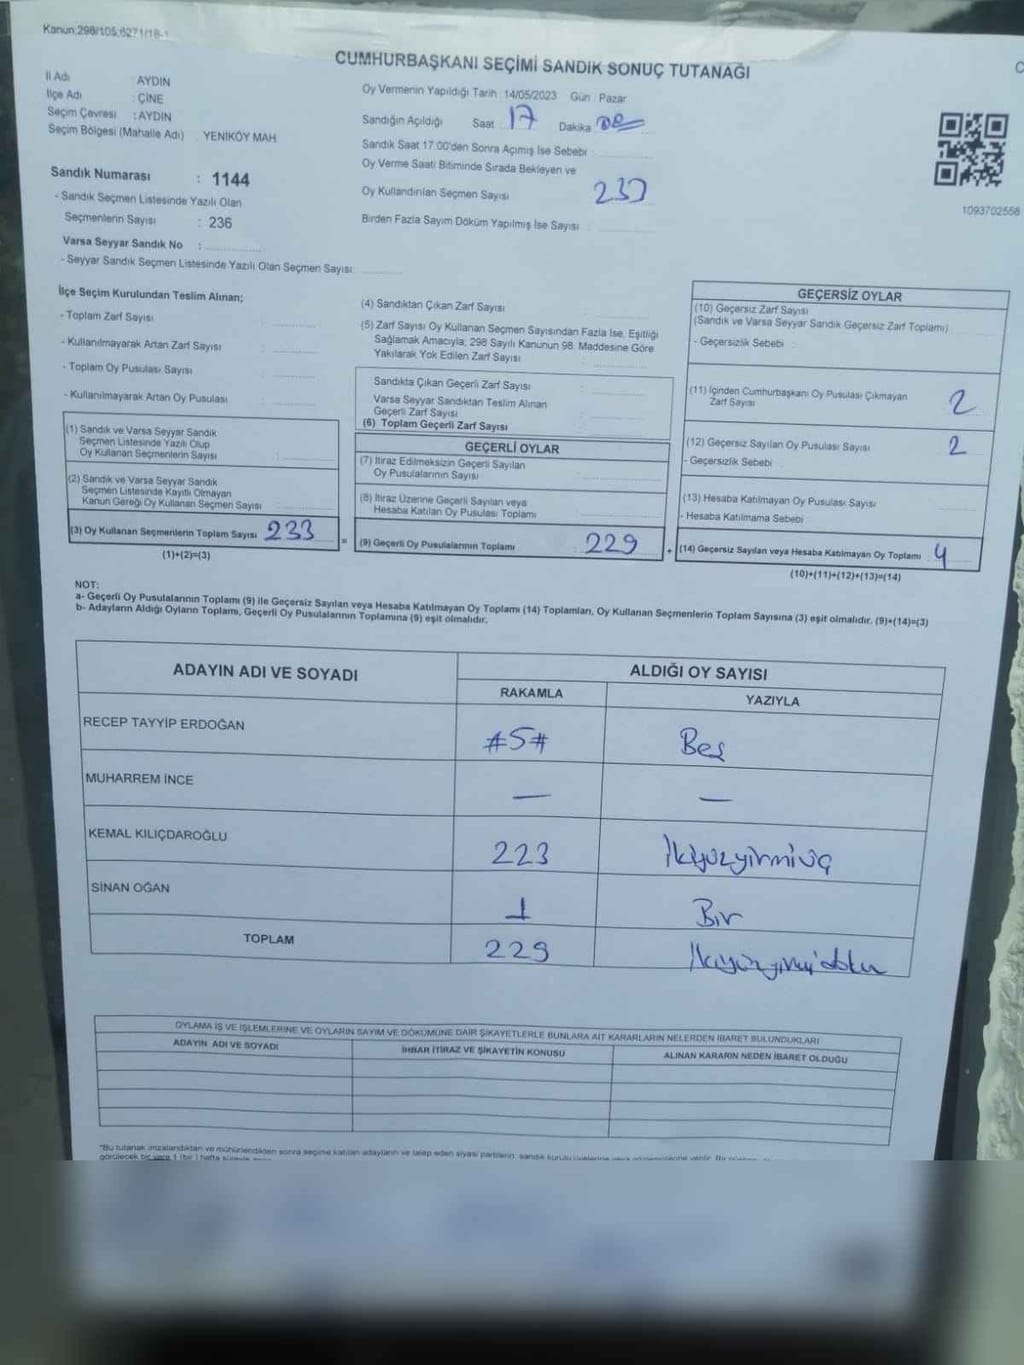 Kanun,298/105,6271/18-1
CUMHURBAŞKANI SEÇİMİ SANDIK SONUÇ TUTANAĞI
İl Adı : AYDIN
İlçe Adı : ÇİNE
Seçim Çevresi : AYDIN
Seçim Bölgesi (Mahalle Adı) YENİKÖY MAH
Sandık Numarası : 1144
- Sandık Seçmen Listesinde Yazılı Olan
Seçmenlerin Sayısı : 236
Varsa Seyyar Sandık No :
- Seyyar Sandık Seçmen Listesinde Yazılı Olan Seçmen Sayısı:
Oy Vermenin Yapıldığı Tarih : 14/05/2023 Gün : Pazar
Sandığın Açıldığı Saat 17 Dakika
Sandık Saat 17:00'den Sonra Açımış İse Sebebi :
Oy Verme Saati Bitiminde Sırada Bekleyen ve
Oy Kullandırılan Seçmen Sayısı 233
Birden Fazla Sayım Döküm Yapılmış İse Sayısı :
1093702558
İlçe Seçim Kurulundan Teslim Alınan;
- Toplam Zarf Sayısı :
- Kullanılmayarak Artan Zarf Sayısı :
- Toplam Oy Pusulası Sayısı :
- Kullanılmayarak Artan Oy Pusulası :
(1) Sandık ve Varsa Seyyar Sandık
Seçmen Listesinde Yazılı Olup
Oy Kullanan Seçmenlerin Sayısı :
(2) Sandık ve Varsa Seyyar Sandık
Seçmen Listesinde Kayıtlı Olmayan
Kanun Gereği Oy Kullanan Seçmen Sayısı :
(3) Oy Kullanan Seçmenlerin Toplam Sayısı : 233
(1)+(2)=(3)
=
(4) Sandıktan Çıkan Zarf Sayısı :
(5) Zarf Sayısı Oy Kullanan Seçmen Sayısından Fazla İse, Eşitliği
Sağlamak Amacıyla; 298 Sayılı Kanunun 98. Maddesine Göre
Yakılarak Yok Edilen Zarf Sayısı :
Sandıkta Çıkan Geçerli Zarf Sayısı :
Varsa Seyyar Sandıktan Teslim Alınan
Geçerli Zarf Sayısı :
(6) Toplam Geçerli Zarf Sayısı :
GEÇERLİ OYLAR
(7) İtiraz Edilmeksizin Geçerli Sayılan
Oy Pusulalarının Sayısı :
(8) İtiraz Üzerine Geçerli Sayılan veya
Hesaba Katılan Oy Pusulası Toplamı :
(9) Geçerli Oy Pusulalarının Toplamı : 229
+
GEÇERSİZ OYLAR
(10) Geçersiz Zarf Sayısı
(Sandık ve Varsa Seyyar Sandık Geçersiz Zarf Toplamı)
- Geçersizlik Sebebi :
(11) İçinden Cumhurbaşkanı Oy Pusulası Çıkmayan
Zarf Sayısı : 2
(12) Geçersiz Sayılan Oy Pusulası Sayısı : 2
- Geçersizlik Sebebi :
(13) Hesaba Katılmayan Oy Pusulası Sayısı :
- Hesaba Katılmama Sebebi :
(14) Geçersiz Sayılan veya Hesaba Katılmayan Oy Toplamı : 4
(10)+(11)+(12)+(13)=(14)
NOT:
a- Geçerli Oy Pusulalarının Toplamı (9) ile Geçersiz Sayılan veya Hesaba Katılmayan Oy Toplamı (14) Toplamları, Oy Kullanan Seçmenlerin Toplam Sayısına (3) eşit olmalıdır. (9)+(14)=(3)
b- Adayların Aldığı Oyların Toplamı, Geçerli Oy Pusulalarının Toplamına (9) eşit olmalıdır.
ADAYIN ADI VE SOYADI ALDIĞI OY SAYISI
RAKAMLA YAZIYLA
RECEP TAYYİP ERDOĞAN #5# Beş
MUHARREM İNCE — —
KEMAL KILIÇDAROĞLU 223 İkiyüzyirmiüç
SİNAN OĞAN 1 Bir
TOPLAM 229 İkiyüzyirmidokuz
OYLAMA İŞ VE İŞLEMLERİNE VE OYLARIN SAYIM VE DÖKÜMÜNE DAİR ŞİKAYETLERLE BUNLARA AİT KARARLARIN NELERDEN İBARET BULUNDUKLARI
ADAYIN ADI VE SOYADI İHBAR İTİRAZ VE ŞİKAYETİN KONUSU ALINAN KARARIN NEDEN İBARET OLDUĞU
*Bu tutanak imzalandıktan ve mühürlendikten sonra seçime katılan adayların ve talep eden siyasi partilerin sandık kurulu üyelerine veya